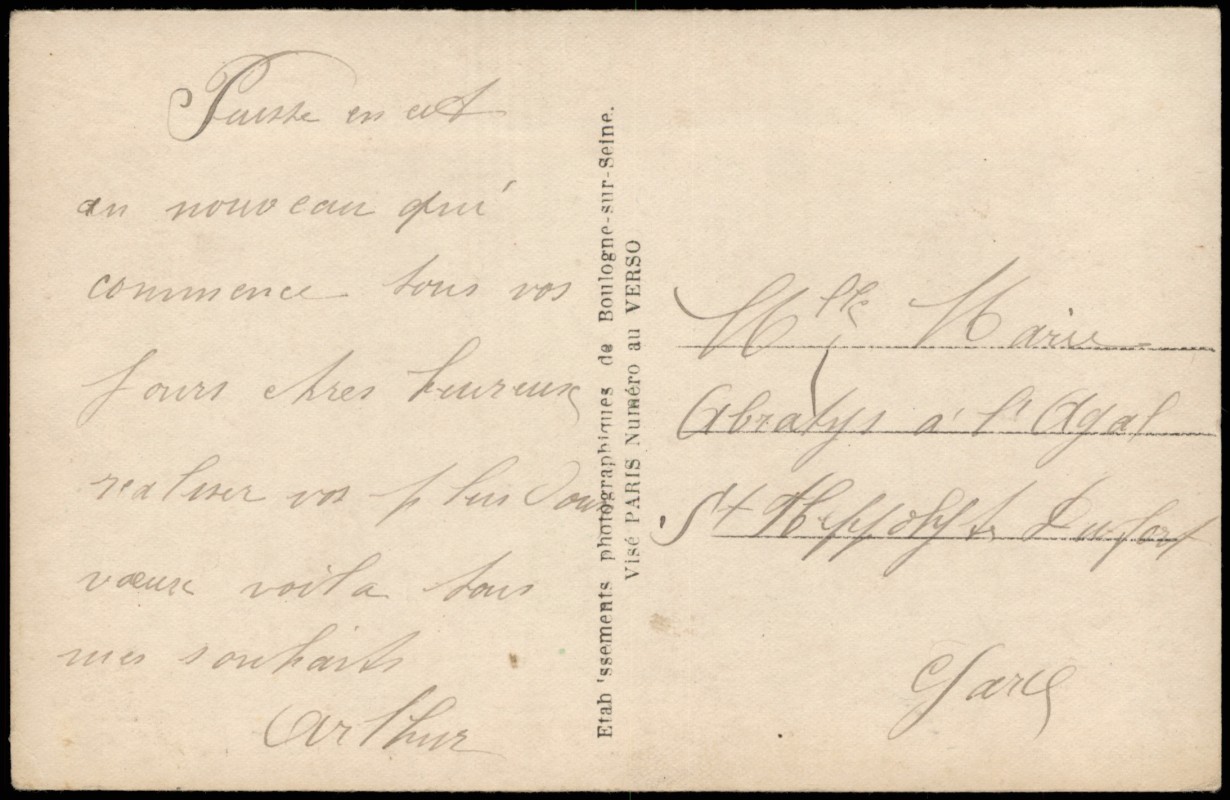 Puisse en cet
an nouveau qui
commence tous vos
jours etres heureux
realiser vos plus doux
vœux voila tous
mes souhaits
Arthur
Etab'ssements photographiques de Boulogne-sur-Seine.
Visé PARIS Numéro au VERSO
Mlle Marie
Abratys a l'Agal
St Heppolyte Du fort
Gard